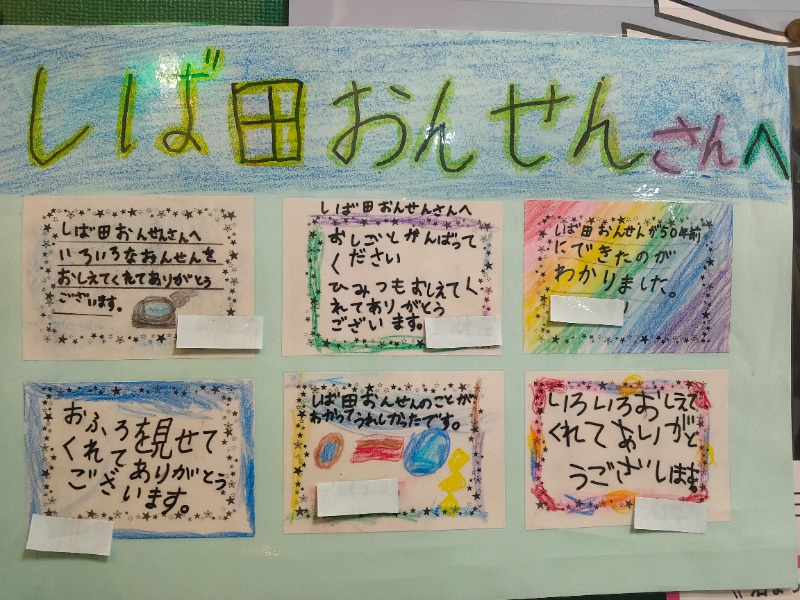 しば田おんせんさんへ
しば田おんせんさんへ
いろいろなおんせんを
おしえてくれてありがとう
ございます。
しば田おんせんさんへ
おしごとがんばって
ください
ひみつもおしえてく
れてありがとう
ございます。
しば田おんせんが50年前
にできたのが
わかりました。
おふろを見せて
くれてありがとう
ございます。
しば田おんせんのことが
わかってうれしかったです。
いろいろおしえて
くれてありがと
うございします。